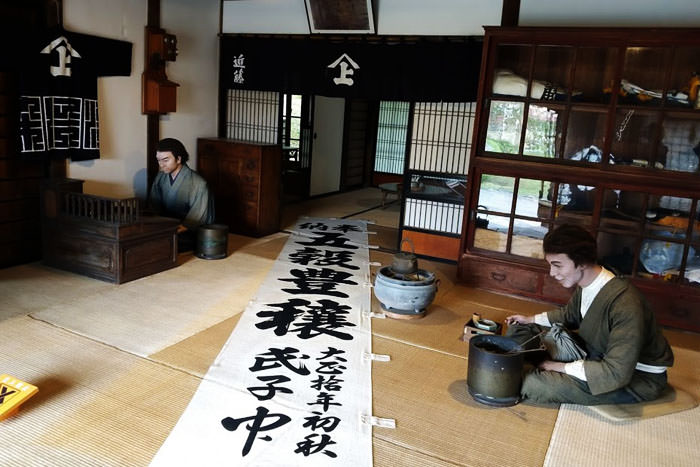 近藤
上
上
奉納
五穀豊穣
大正拾年初秋
氏子中